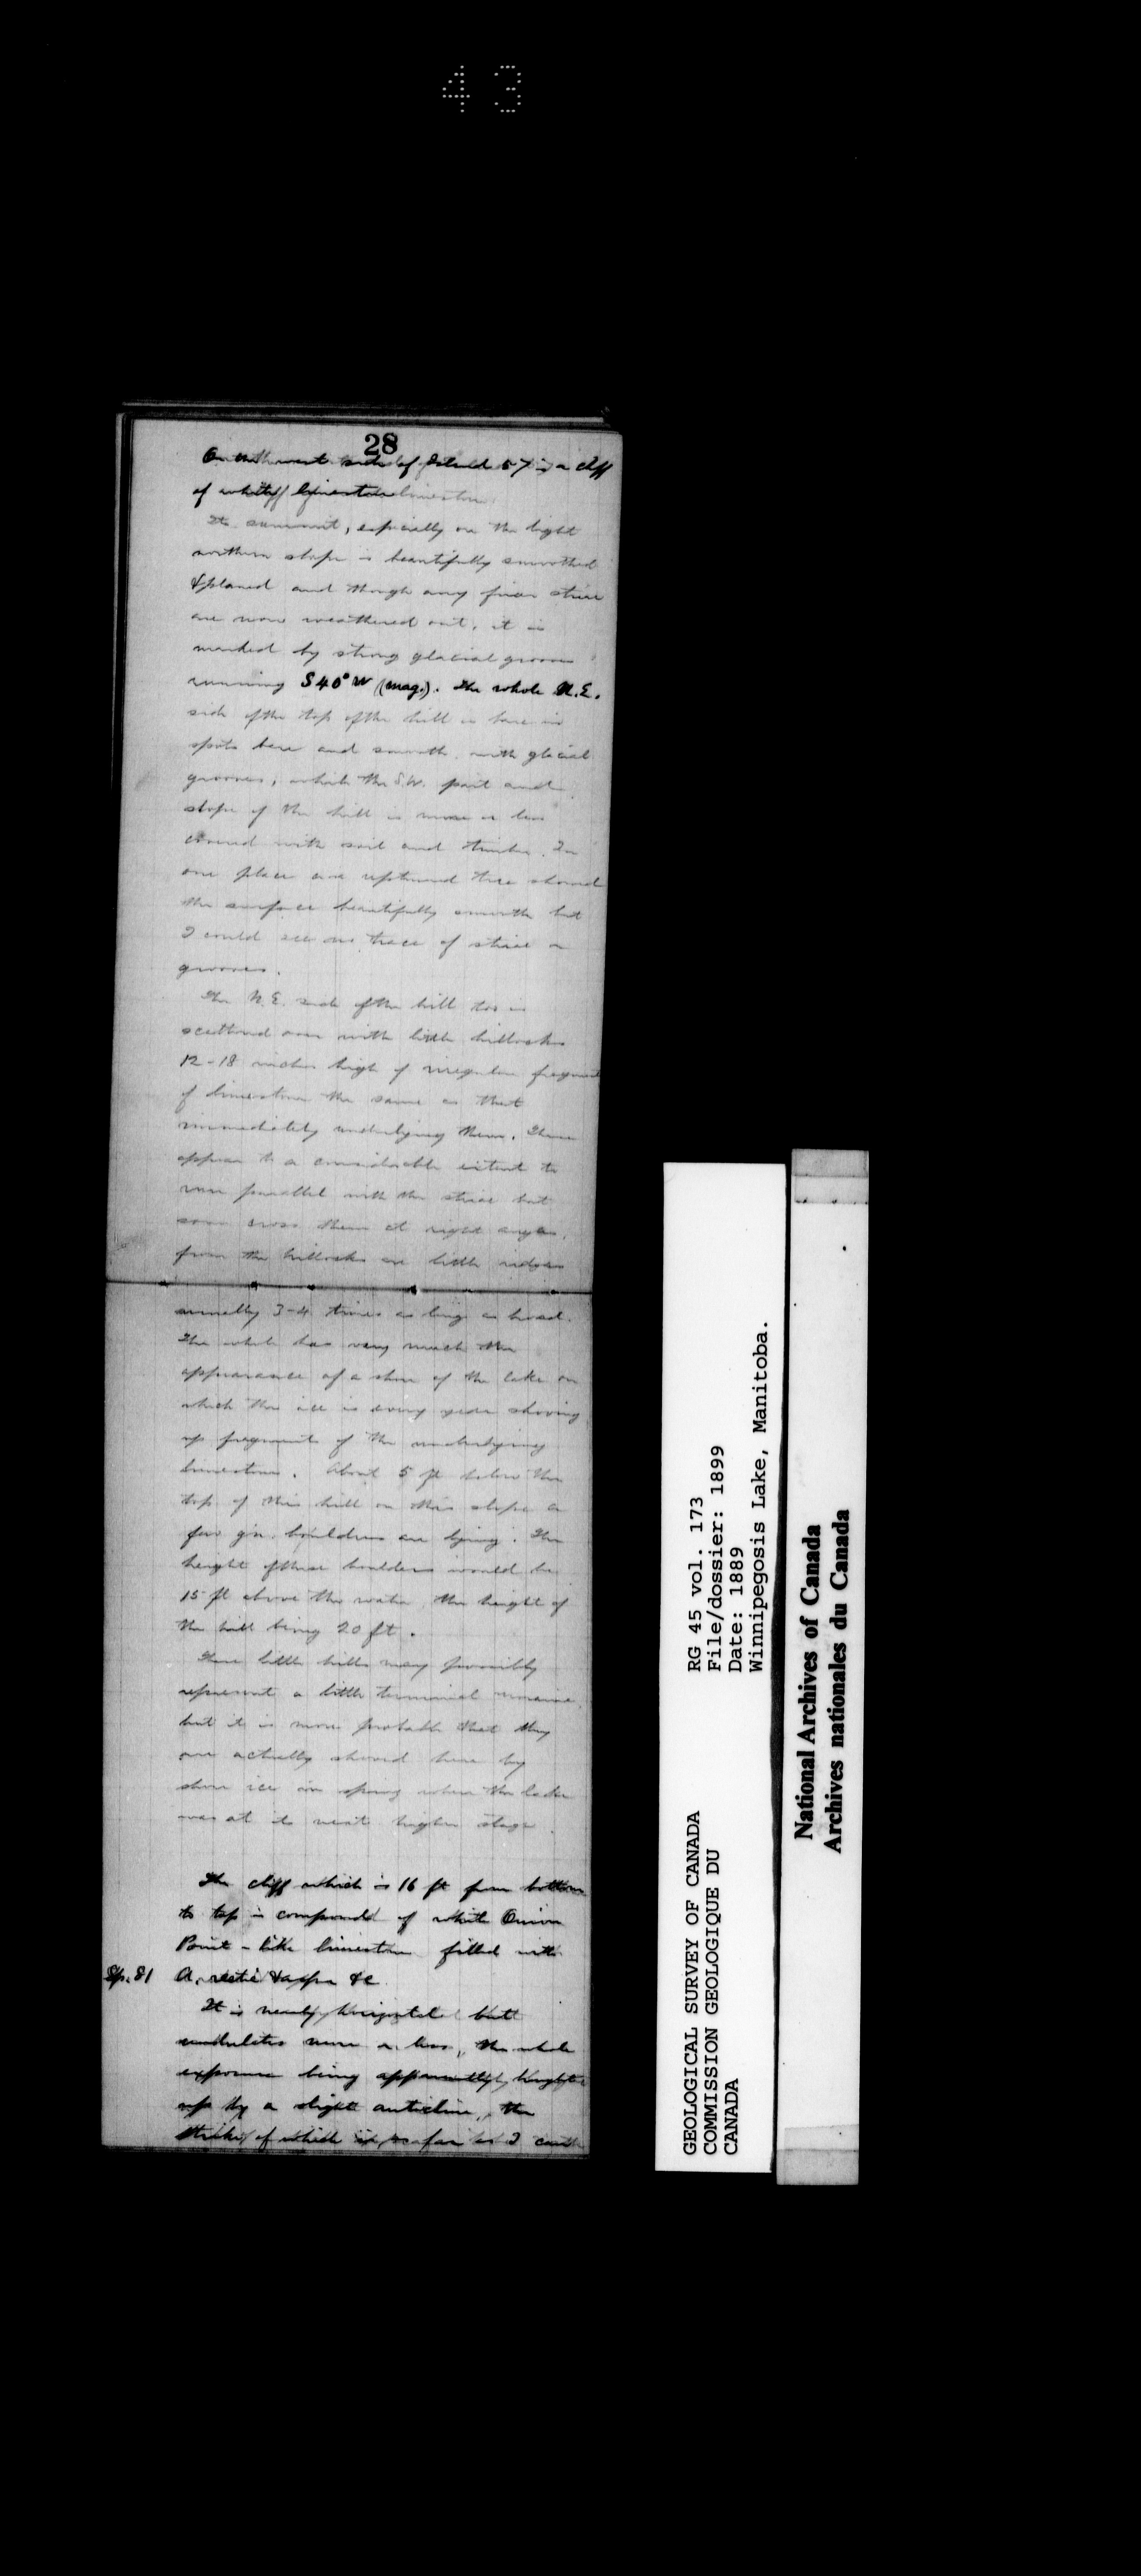 43
28
On the west side of Island 57 is a cliff
of white limestone
Its summit, especially on the light
northern slope is beautifully smoothed
& planed and though any finer striae
are now weathered out, it is
marked by strong glacial grooves
running S40°W (mag.). The whole N.E.
side of the top of the hill is bare in
spots bare and smooth with glacial
grooves, while the S.W. part and
slope of the hill is more or less
covered with soil and timber. In
one place an upturned tree showed
the surface beautifully smooth but
I could see no trace of striae or
grooves.
The N.E. side of the hill too is
scattered over with little hillocks
12-18 inches high of irregular fragments
of limestone the same as that
immediately underlying them. These
appear to a considerable extent to
run parallel with the striae but
some cross them at right angles,
for the hillocks are little ridges
usually 3-4 times as long as broad.
The whole has very much the
appearance of a shore of the lake on
which the ice is every year shoving
up fragments of the underlying
limestone. About 5 ft below the
top of the hill on this slope a
few gn. boulders are lying. The
height of these boulders would be
15 ft above the water the height of
the hill being 20 ft.
These little hills may possibly
represent a little terminal moraine,
but it is more probable that they
are actually shoved here by
shore ice in spring when the lake
was at its next higher stage.
The cliff which is 16 ft from bottom
to top is composed of white Onion
Point-like limestone filled with
Sp. 81 A. &c
It is nearly horizontal but
undulates more or less, the whole
exposure being apparently brought
up by a slight anticline, the
strike of which is, as far as I could
GEOLOGICAL SURVEY OF CANADA
COMMISSION GEOLOGIQUE DU
CANADA
RG 45 vol. 173
File/dossier: 1899
Date: 1889
Winnipegosis Lake, Manitoba.
National Archives of Canada
Archives nationales du Canada